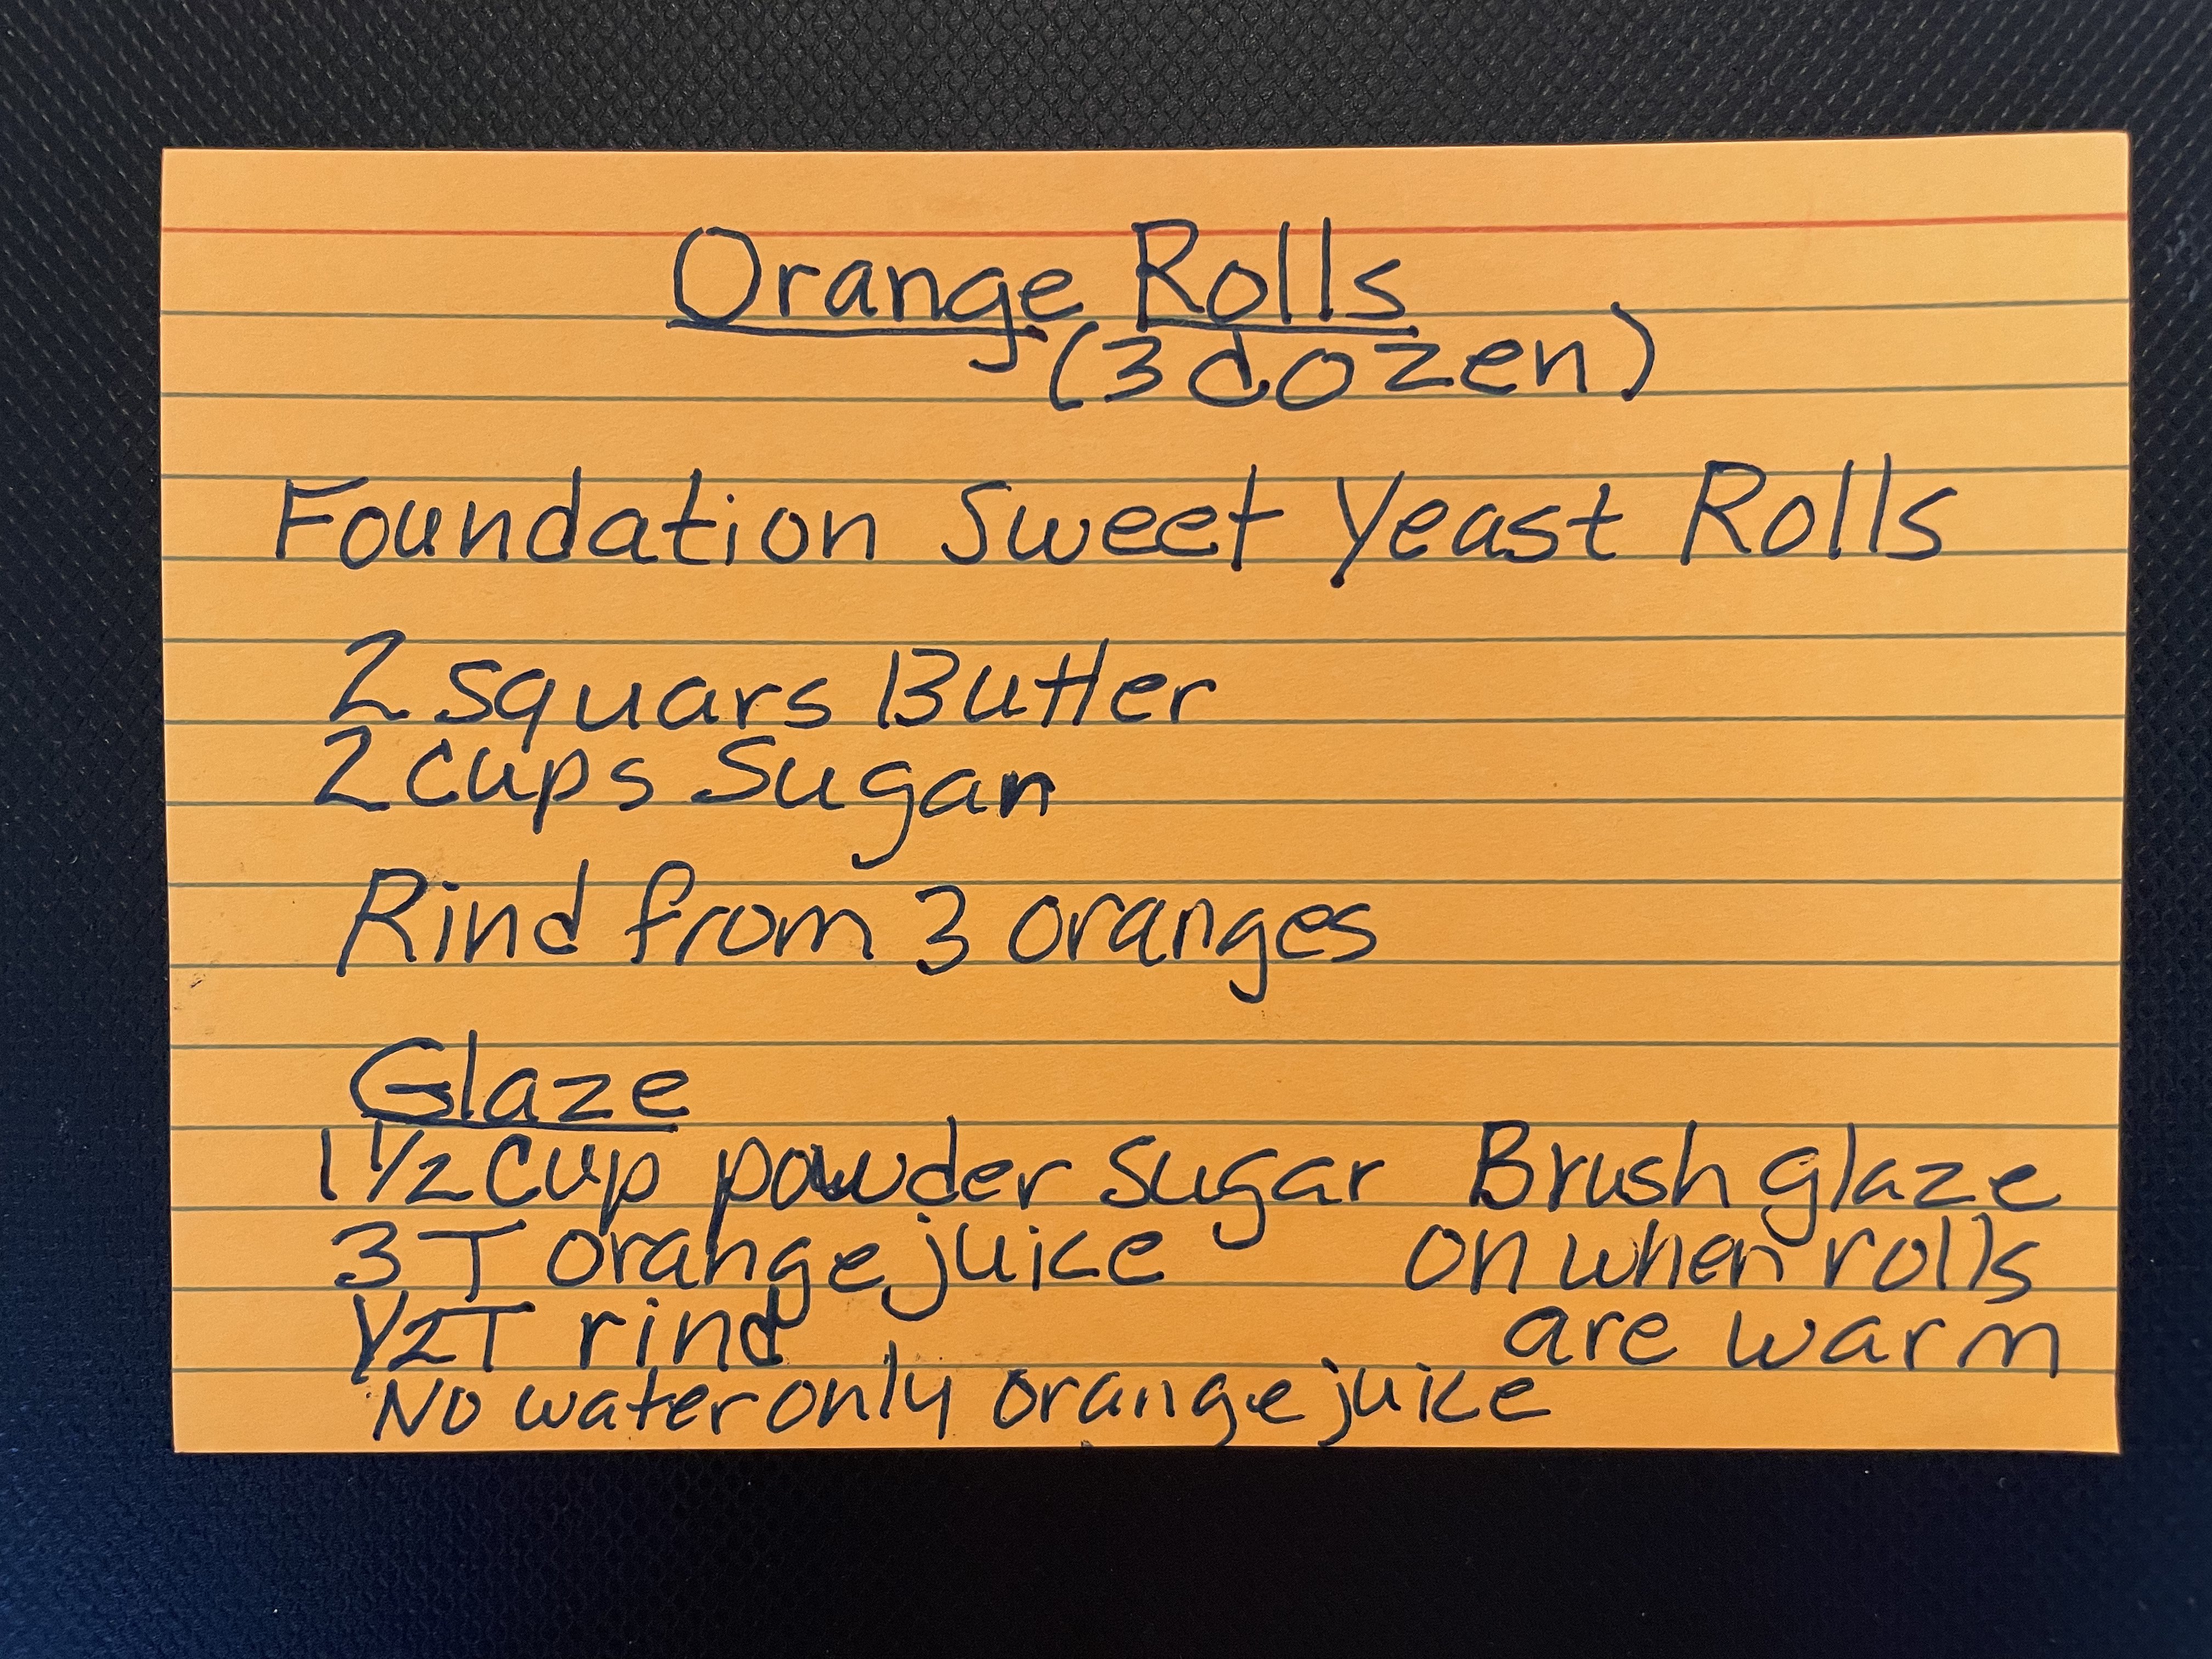 Orange Rolls
(3 dozen)
Foundation Sweet Yeast Rolls
2 squars Butter
2 cups Sugar
Rind from 3 oranges
Glaze
1 1/2 cup powder sugar
3 T orange juice
1/2 T rind
No water only orange juice
Brush glaze
on when rolls
are warm